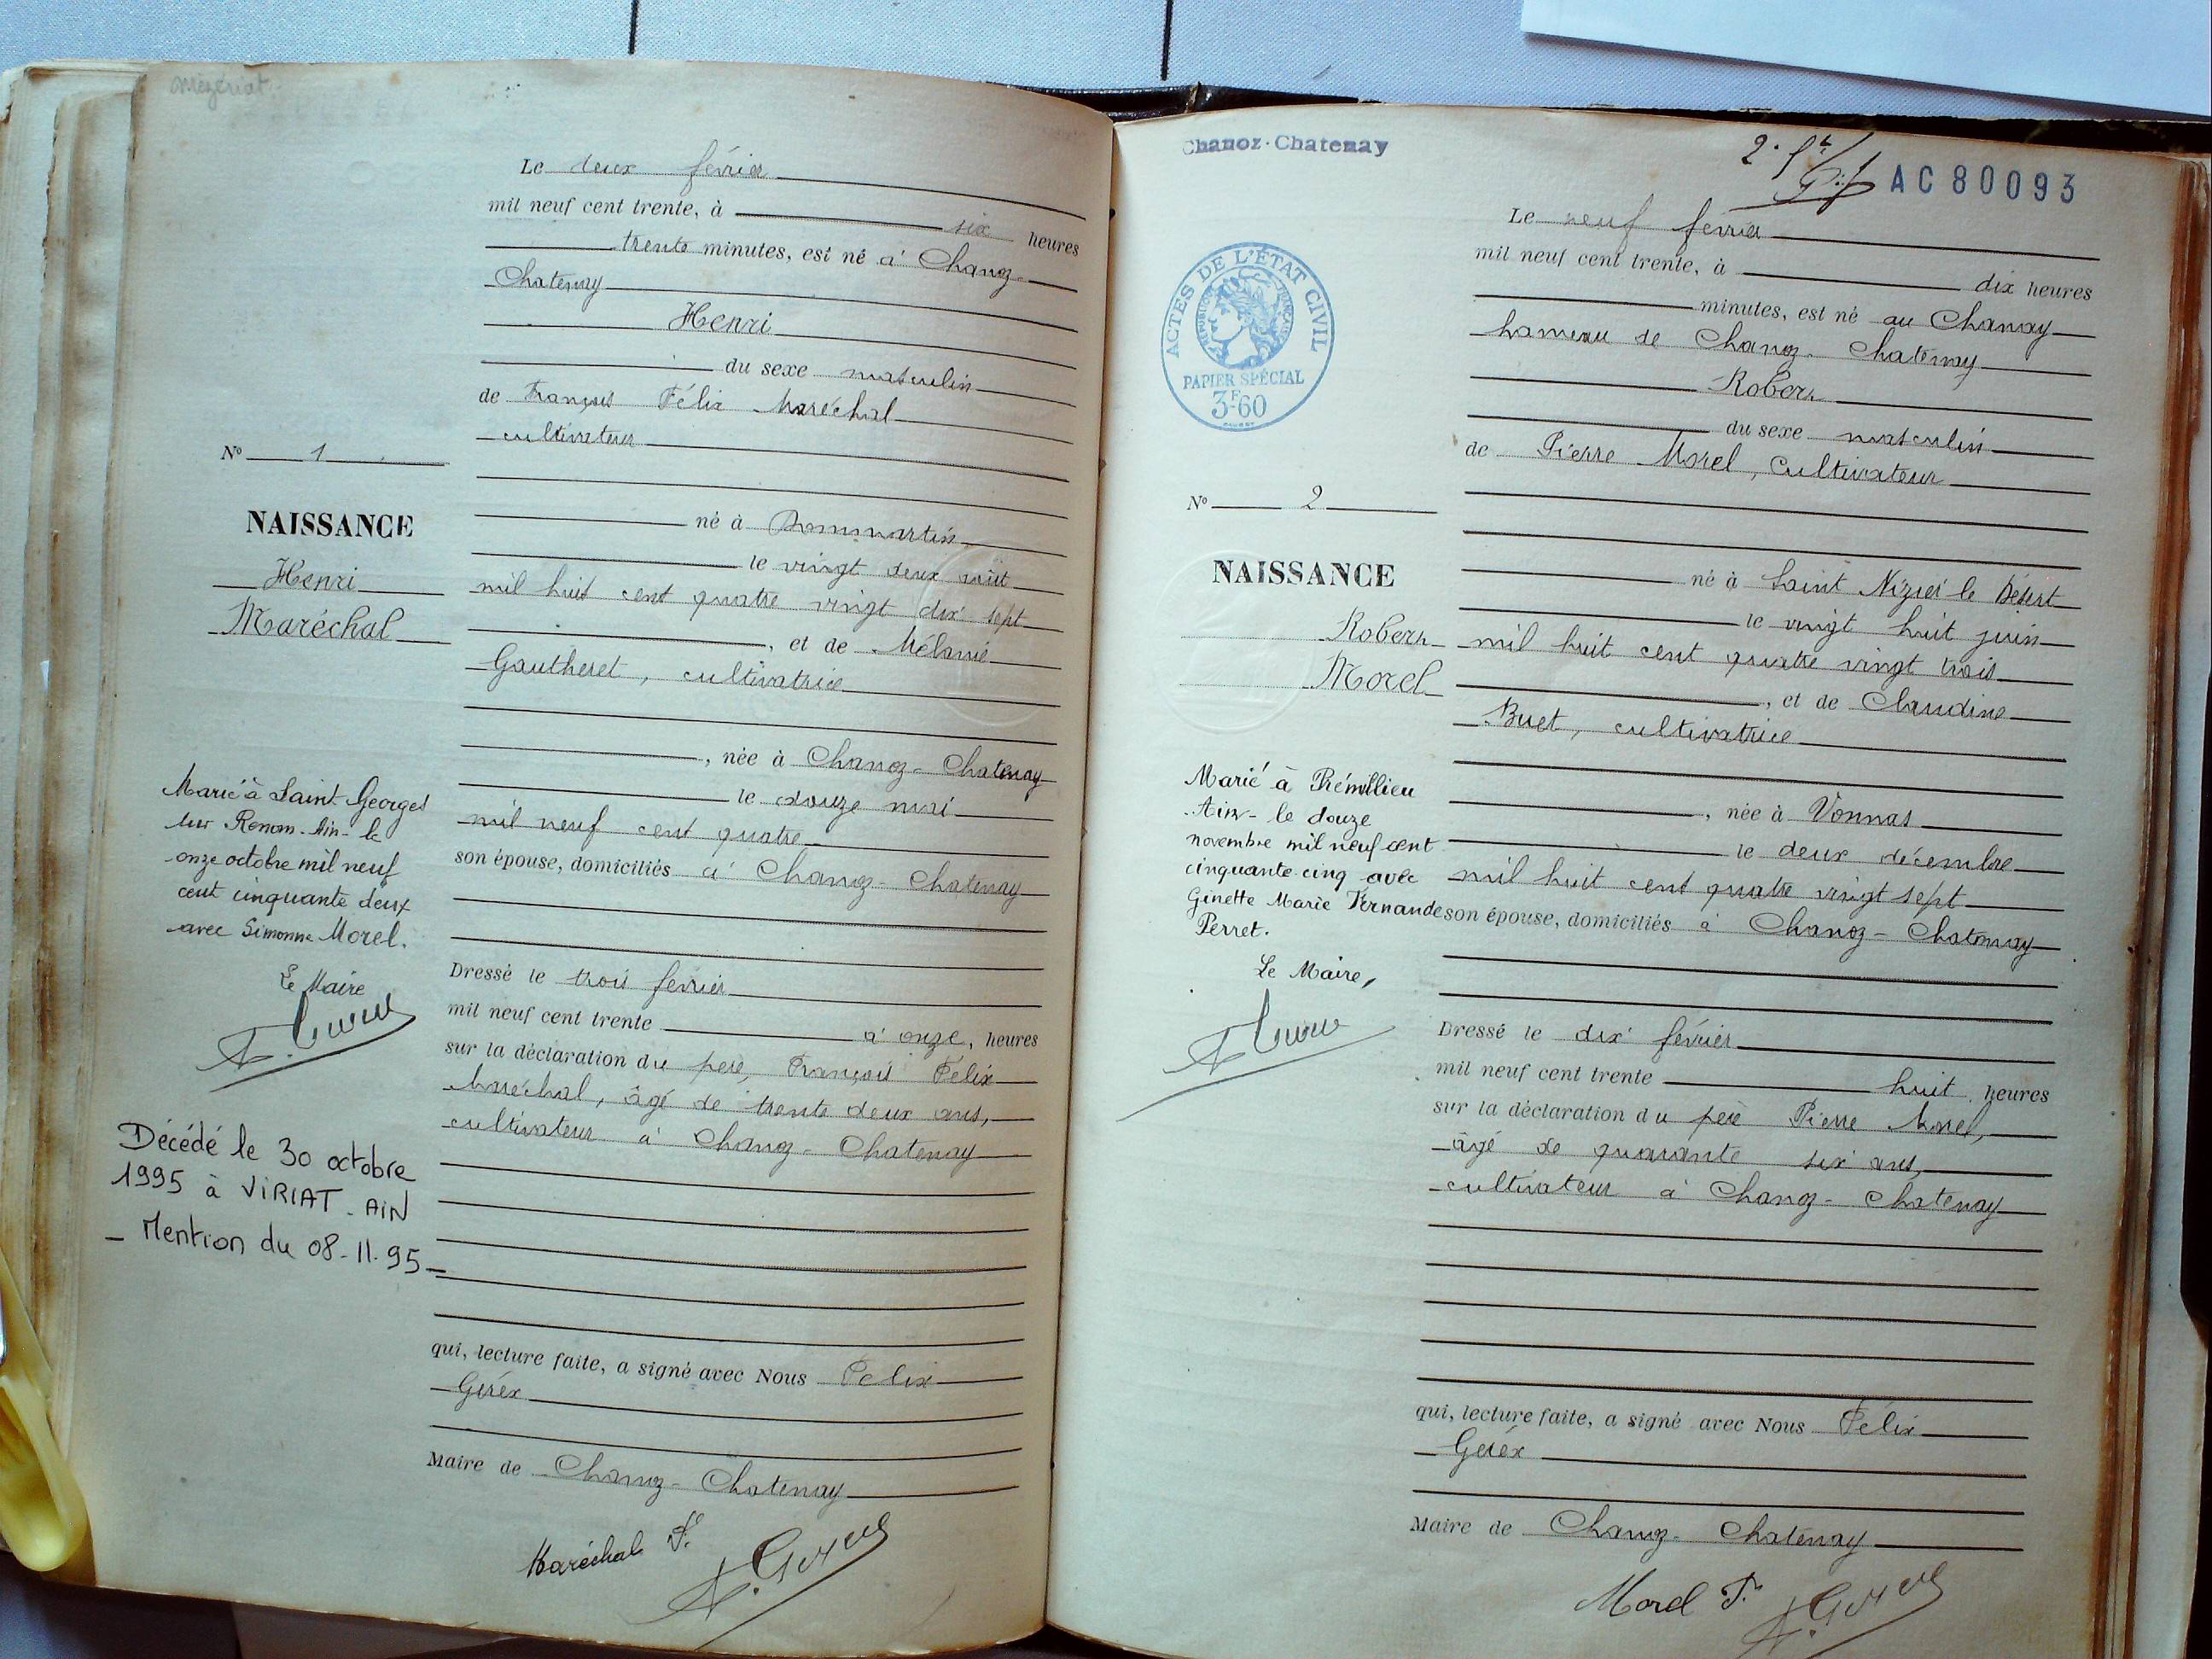 Mézériat
Le deux février
mil neuf cent trente, à six heures
trente minutes, est né à Chanoz-
Chatenay
Henri
du sexe masculin
de François Félix Maréchal
cultivateur
né à Dommartin
le vingt deux août
mil huit cent quatre vingt dix sept
, et de Mélanie
Gautheret, cultivatrice
, née à Chanoz-Chatenay
le douze mai
mil neuf cent quatre
son épouse, domiciliés à Chanoz-Chatenay
Dressé le trois février
mil neuf cent trente à onze, heures
sur la déclaration du père, François Félix
Maréchal, âgé de trente deux ans,
cultivateur à Chanoz-Chatenay
qui, lecture faite, a signé avec Nous Félix
Maire de Chanoz-Chatenay
Maréchal F.
No 1
NAISSANCE
Henri
Maréchal
Marié à Saint-Georges
sur Renom-Ain-le
onze octobre mil neuf
cent cinquante deux
avec Simonne Morel.
Le Maire
Décédé le 30 octobre
1995 à VIRIAT-AIN
- Mention du 08-11-95-
Chanoz-Chatenay
AC80093
ACTES DE L'ÉTAT CIVIL
RÉPUBLIQUE FRANÇAISE
PAPIER SPÉCIAL
3F60
Le neuf février
mil neuf cent trente, à dix heures
minutes, est né au Chanay
hameau de Chanoz-Chatenay
Robert
du sexe masculin
de Pierre Morel, Cultivateur
né à Saint Nizier le Désert
le vingt huit juin
mil huit cent quatre vingt trois
, et de Claudine
Buet, cultivatrice
, née à Vonnas
le deux décembre
mil huit cent quatre vingt sept
son épouse, domiciliés à Chanoz-Chatenay
Dressé le dix février
mil neuf cent trente huit heures
sur la déclaration du père Pierre Morel,
âgé de quarante six ans,
cultivateur à Chanoz-Chatenay
qui, lecture faite, a signé avec Nous Félix
Maire de Chanoz-Chatenay
Morel P.
No 2
NAISSANCE
Robert
Morel
Marié à Prémillieu
-Ain- le douze
novembre mil neuf cent
cinquante-cinq avec
Ginette Marie Fernande
Perret.
Le Maire,